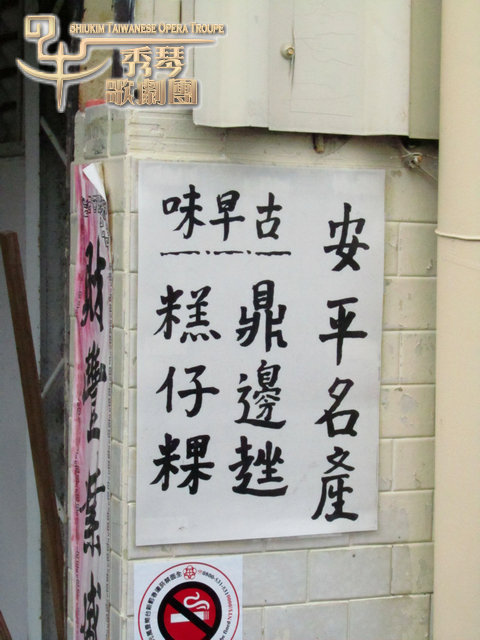 SHIUKIM TAIWANESE OPERA TROUPE
秀琴
歌劇團
安平名產
古早味
鼎邊趖
糕仔粿
財豐業盛